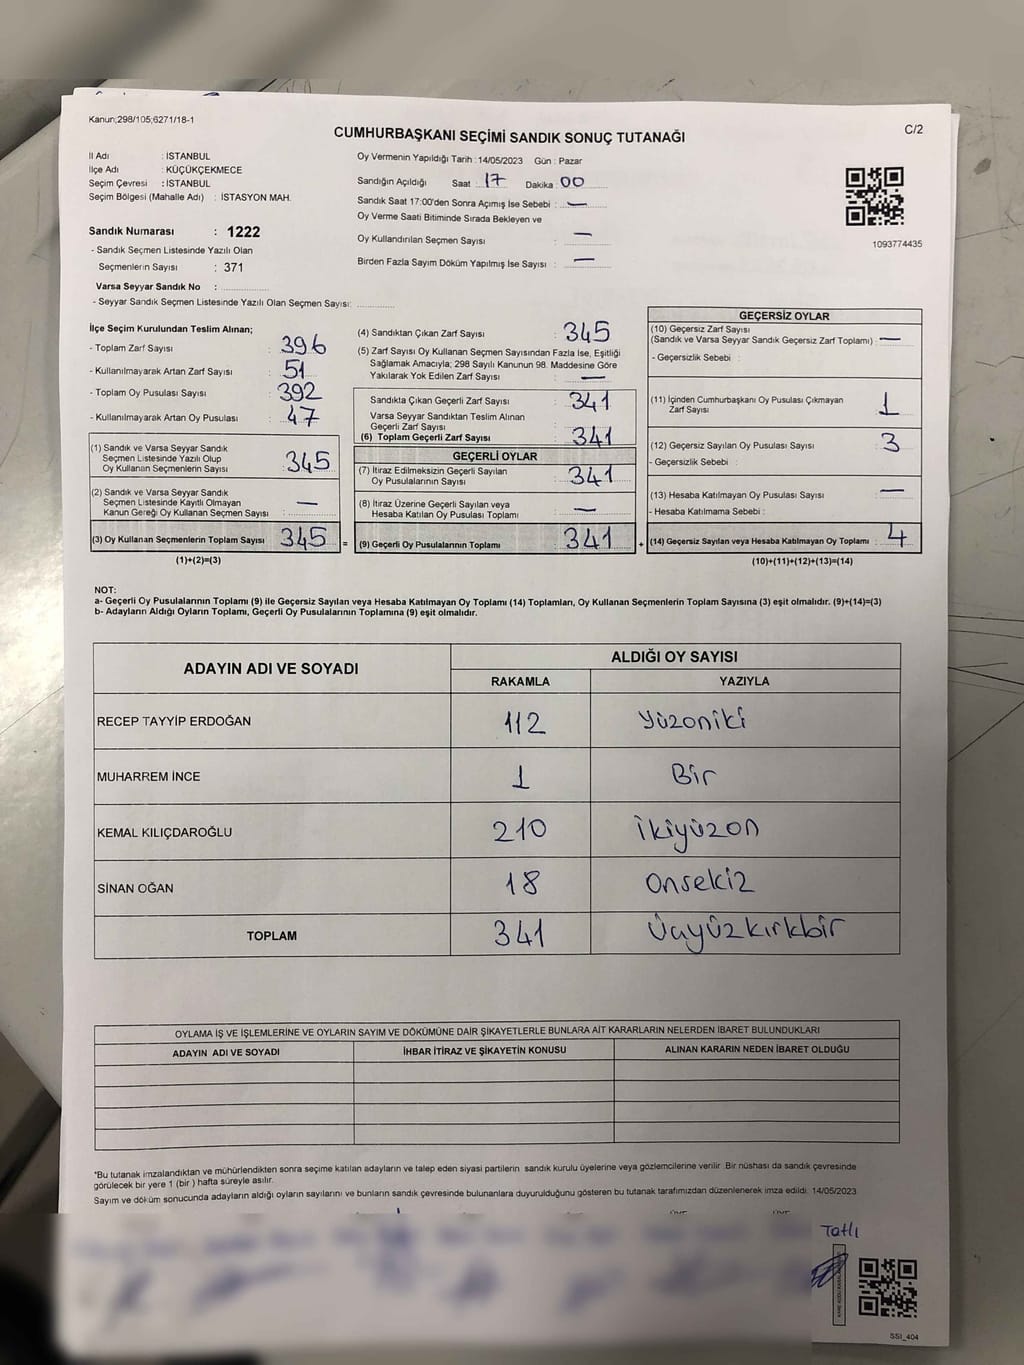 Kanun;298/105;6271/18-1
CUMHURBAŞKANI SEÇİMİ SANDIK SONUÇ TUTANAĞI
C/2
İl Adı : İSTANBUL
İlçe Adı : KÜÇÜKÇEKMECE
Seçim Çevresi : İSTANBUL
Seçim Bölgesi (Mahalle Adı) : İSTASYON MAH.
Sandık Numarası : 1222
- Sandık Seçmen Listesinde Yazılı Olan
Seçmenlerin Sayısı : 371
Varsa Seyyar Sandık No :
- Seyyar Sandık Seçmen Listesinde Yazılı Olan Seçmen Sayısı:
Oy Vermenin Yapıldığı Tarih : 14/05/2023 Gün : Pazar
Sandığın Açıldığı Saat : 17 Dakika : 00
Sandık Saat 17:00'den Sonra Açımış İse Sebebi : —
Oy Verme Saati Bitiminde Sırada Bekleyen ve
Oy Kullandırılan Seçmen Sayısı : —
Birden Fazla Sayım Döküm Yapılmış İse Sayısı : —
1093774435
İlçe Seçim Kurulundan Teslim Alınan;
- Toplam Zarf Sayısı : 396
- Kullanılmayarak Artan Zarf Sayısı : 51
- Toplam Oy Pusulası Sayısı : 392
- Kullanılmayarak Artan Oy Pusulası : 47
(1) Sandık ve Varsa Seyyar Sandık
Seçmen Listesinde Yazılı Olup
Oy Kullanan Seçmenlerin Sayısı : 345
(2) Sandık ve Varsa Seyyar Sandık
Seçmen Listesinde Kayıtlı Olmayan
Kanun Gereği Oy Kullanan Seçmen Sayısı : —
(3) Oy Kullanan Seçmenlerin Toplam Sayısı : 345 =
(1)+(2)=(3)
(4) Sandıktan Çıkan Zarf Sayısı : 345
(5) Zarf Sayısı Oy Kullanan Seçmen Sayısından Fazla İse, Eşitliği
Sağlamak Amacıyla; 298 Sayılı Kanunun 98. Maddesine Göre
Yakılarak Yok Edilen Zarf Sayısı : —
Sandıkta Çıkan Geçerli Zarf Sayısı : 341
Varsa Seyyar Sandıktan Teslim Alınan
Geçerli Zarf Sayısı :
(6) Toplam Geçerli Zarf Sayısı : 341
GEÇERLİ OYLAR
(7) İtiraz Edilmeksizin Geçerli Sayılan
Oy Pusulalarının Sayısı : 341
(8) İtiraz Üzerine Geçerli Sayılan veya
Hesaba Katılan Oy Pusulası Toplamı : —
(9) Geçerli Oy Pusulalarının Toplamı : 341 +
GEÇERSİZ OYLAR
(10) Geçersiz Zarf Sayısı
(Sandık ve Varsa Seyyar Sandık Geçersiz Zarf Toplamı) : —
- Geçersizlik Sebebi :
(11) İçinden Cumhurbaşkanı Oy Pusulası Çıkmayan
Zarf Sayısı : 1
(12) Geçersiz Sayılan Oy Pusulası Sayısı : 3
- Geçersizlik Sebebi :
(13) Hesaba Katılmayan Oy Pusulası Sayısı : —
- Hesaba Katılmama Sebebi :
(14) Geçersiz Sayılan veya Hesaba Katılmayan Oy Toplamı : 4
(10)+(11)+(12)+(13)=(14)
NOT:
a- Geçerli Oy Pusulalarının Toplamı (9) ile Geçersiz Sayılan veya Hesaba Katılmayan Oy Toplamı (14) Toplamları, Oy Kullanan Seçmenlerin Toplam Sayısına (3) eşit olmalıdır. (9)+(14)=(3)
b- Adayların Aldığı Oyların Toplamı, Geçerli Oy Pusulalarının Toplamına (9) eşit olmalıdır.
ADAYIN ADI VE SOYADI ALDIĞI OY SAYISI
RAKAMLA YAZIYLA
RECEP TAYYİP ERDOĞAN 112 Yüzoniki
MUHARREM İNCE 1 Bir
KEMAL KILIÇDAROĞLU 210 İkiyüzon
SİNAN OĞAN 18 Onsekiz
TOPLAM 341 Üçyüzkırkbir
OYLAMA İŞ VE İŞLEMLERİNE VE OYLARIN SAYIM VE DÖKÜMÜNE DAİR ŞİKAYETLERLE BUNLARA AİT KARARLARIN NELERDEN İBARET BULUNDUKLARI
ADAYIN ADI VE SOYADI İHBAR İTİRAZ VE ŞİKAYETİN KONUSU ALINAN KARARIN NEDEN İBARET OLDUĞU
*Bu tutanak imzalandıktan ve mühürlendikten sonra seçime katılan adayların ve talep eden siyasi partilerin sandık kurulu üyelerine veya gözlemcilerine verilir. Bir nüshası da sandık çevresinde
görülecek bir yere 1 (bir ) hafta süreyle asılır.
Sayım ve döküm sonucunda adayların aldığı oyların sayılarını ve bunların sandık çevresinde bulunanlara duyurulduğunu gösteren bu tutanak tarafımızdan düzenlenerek imza edildi. 14/05/2023
Tatlı
SSI_404